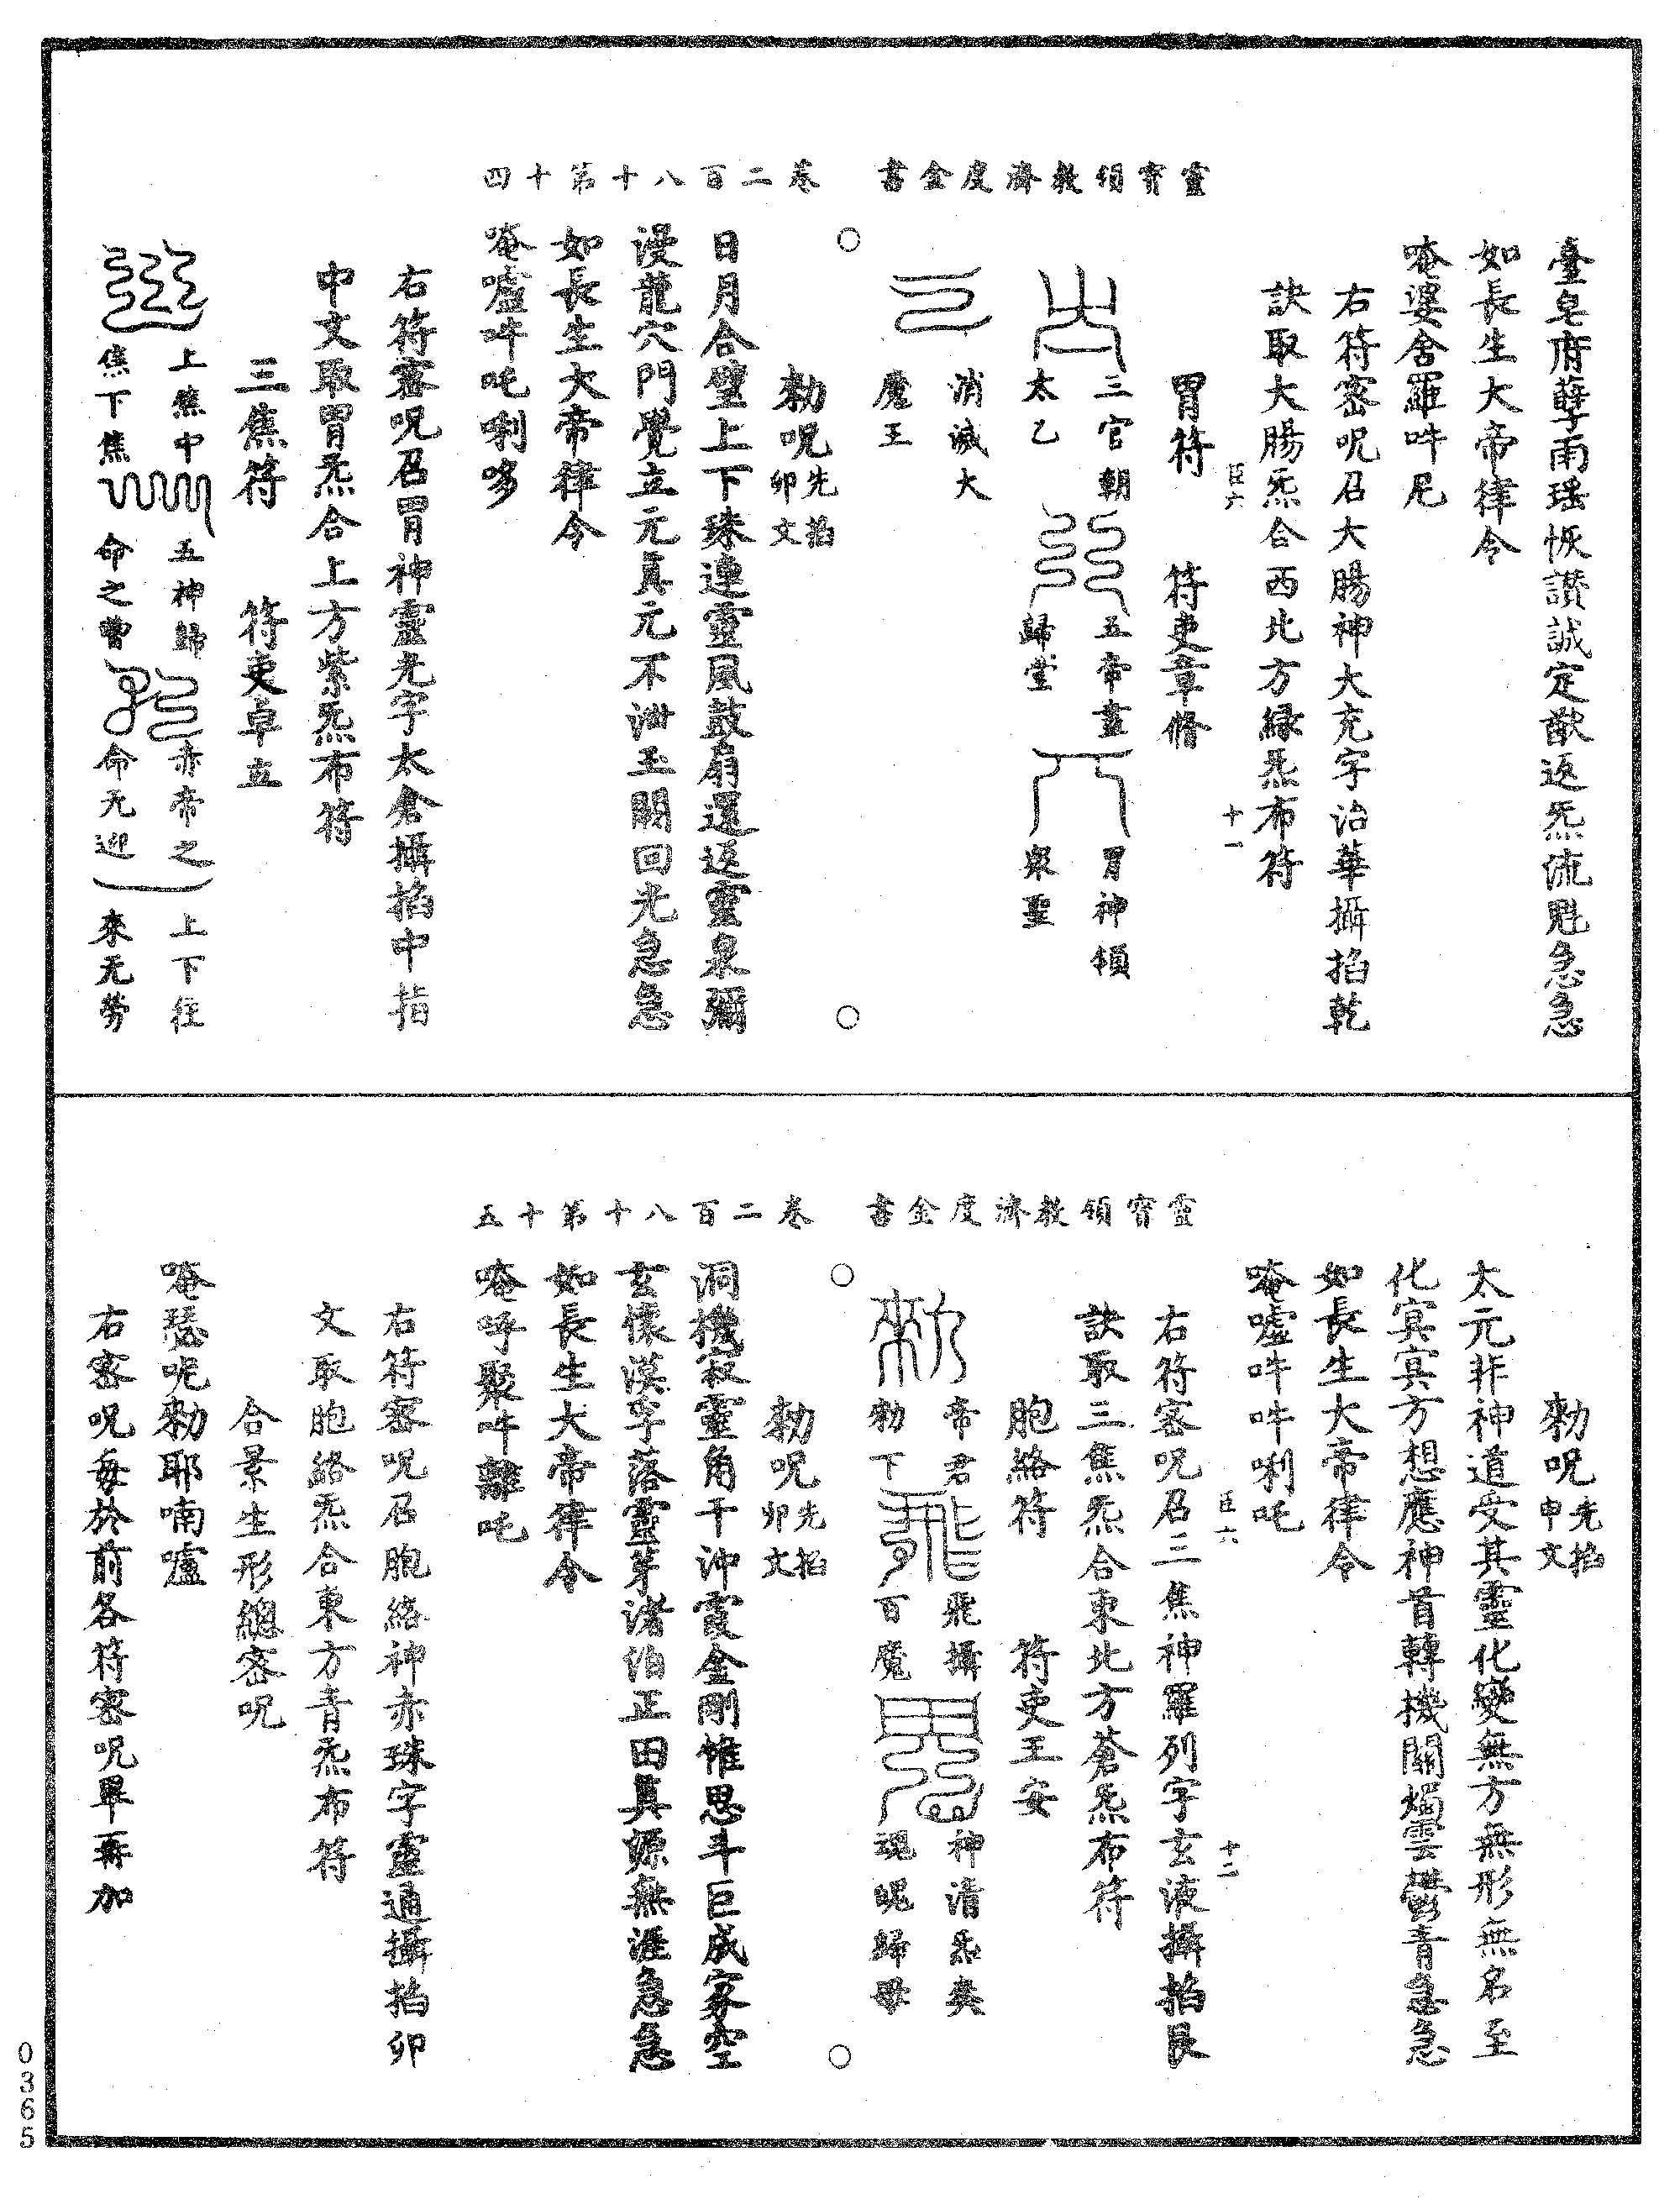 靈寶領教濟度金書　卷二百八十第十四
臺皂府孽雨瑤恢讃誠定猷返炁流魁急急
如長生大帝律令
唵婆舍羅吽尼
右符密呪召大腸神大充字治華攝掐乾
訣取大腸炁合西北方緑炁布符
臣六　十一
胃符　符吏章脩
三官朝　五帝畫　胃神領
太乙　歸堂　衆聖
消滅大
魔王
勑呪先掐卯文
日月合璧上下珠連靈風鼓扇還返靈泉彌
漫龍穴門覺立元真元不泄玉關回光急急
如長生大帝律令
唵嚧吽吒唎哆
右符密呪召胃神靈光字太倉攝掐中指
中文取胃炁合上方紫炁布符
三焦符　符吏卓立
上焦中　五神歸　赤帝之　上下往
焦下焦　命之曹　命无迎　來无勞
靈寶領教濟度金書　卷二百八十第十五
勑呪先掐申文
太元非神道受其靈化變無方無形無名至
化冥冥方想應神首轉機關燭雲鬱青急急
如長生大帝律令
唵嚧吽吽唎吒
臣六　十二
右符密呪召三焦神羅列字玄液攝掐艮
訣取三焦炁合東北方蒼炁布符
胞絡符　符吏王安
帝君　飛攝　神清炁爽
勑下　百魔　魂呢歸毋
勑呪先掐卯文
洞機寂靈角干沖霞金剛惟思斗巨成寥空
玄懷漠字落靈茅渚怕正田真源無涯急急
如長生大帝律令
唵呼聚吽離吒
右符密呪召胞絡神赤珠字靈通攝掐卯
文取胞絡炁合東方青炁布符
合景生形總密呪
唵瑟呢勑耶喃嚧
右密呪每於前各符密呪畢再加
0365